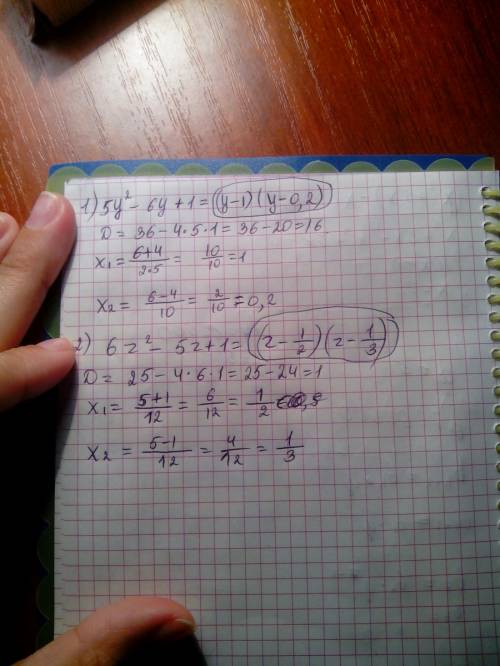 1) 5y² - 6y + 1 = (y-1)(y-0,2)
D = 36 - 4·5·1 = 36 - 20 = 16
x₁ = (6+4)/(2·5) = 10/10 = 1
x₂ = (6-4)/10 = 2/10 = 0,2
2) 6z² - 5z + 1 = (z - 1/2)(z - 1/3)
D = 25 - 4·6·1 = 25 - 24 = 1
x₁ = (5+1)/12 = 6/12 = 1/2
x₂ = (5-1)/12 = 4/12 = 1/3